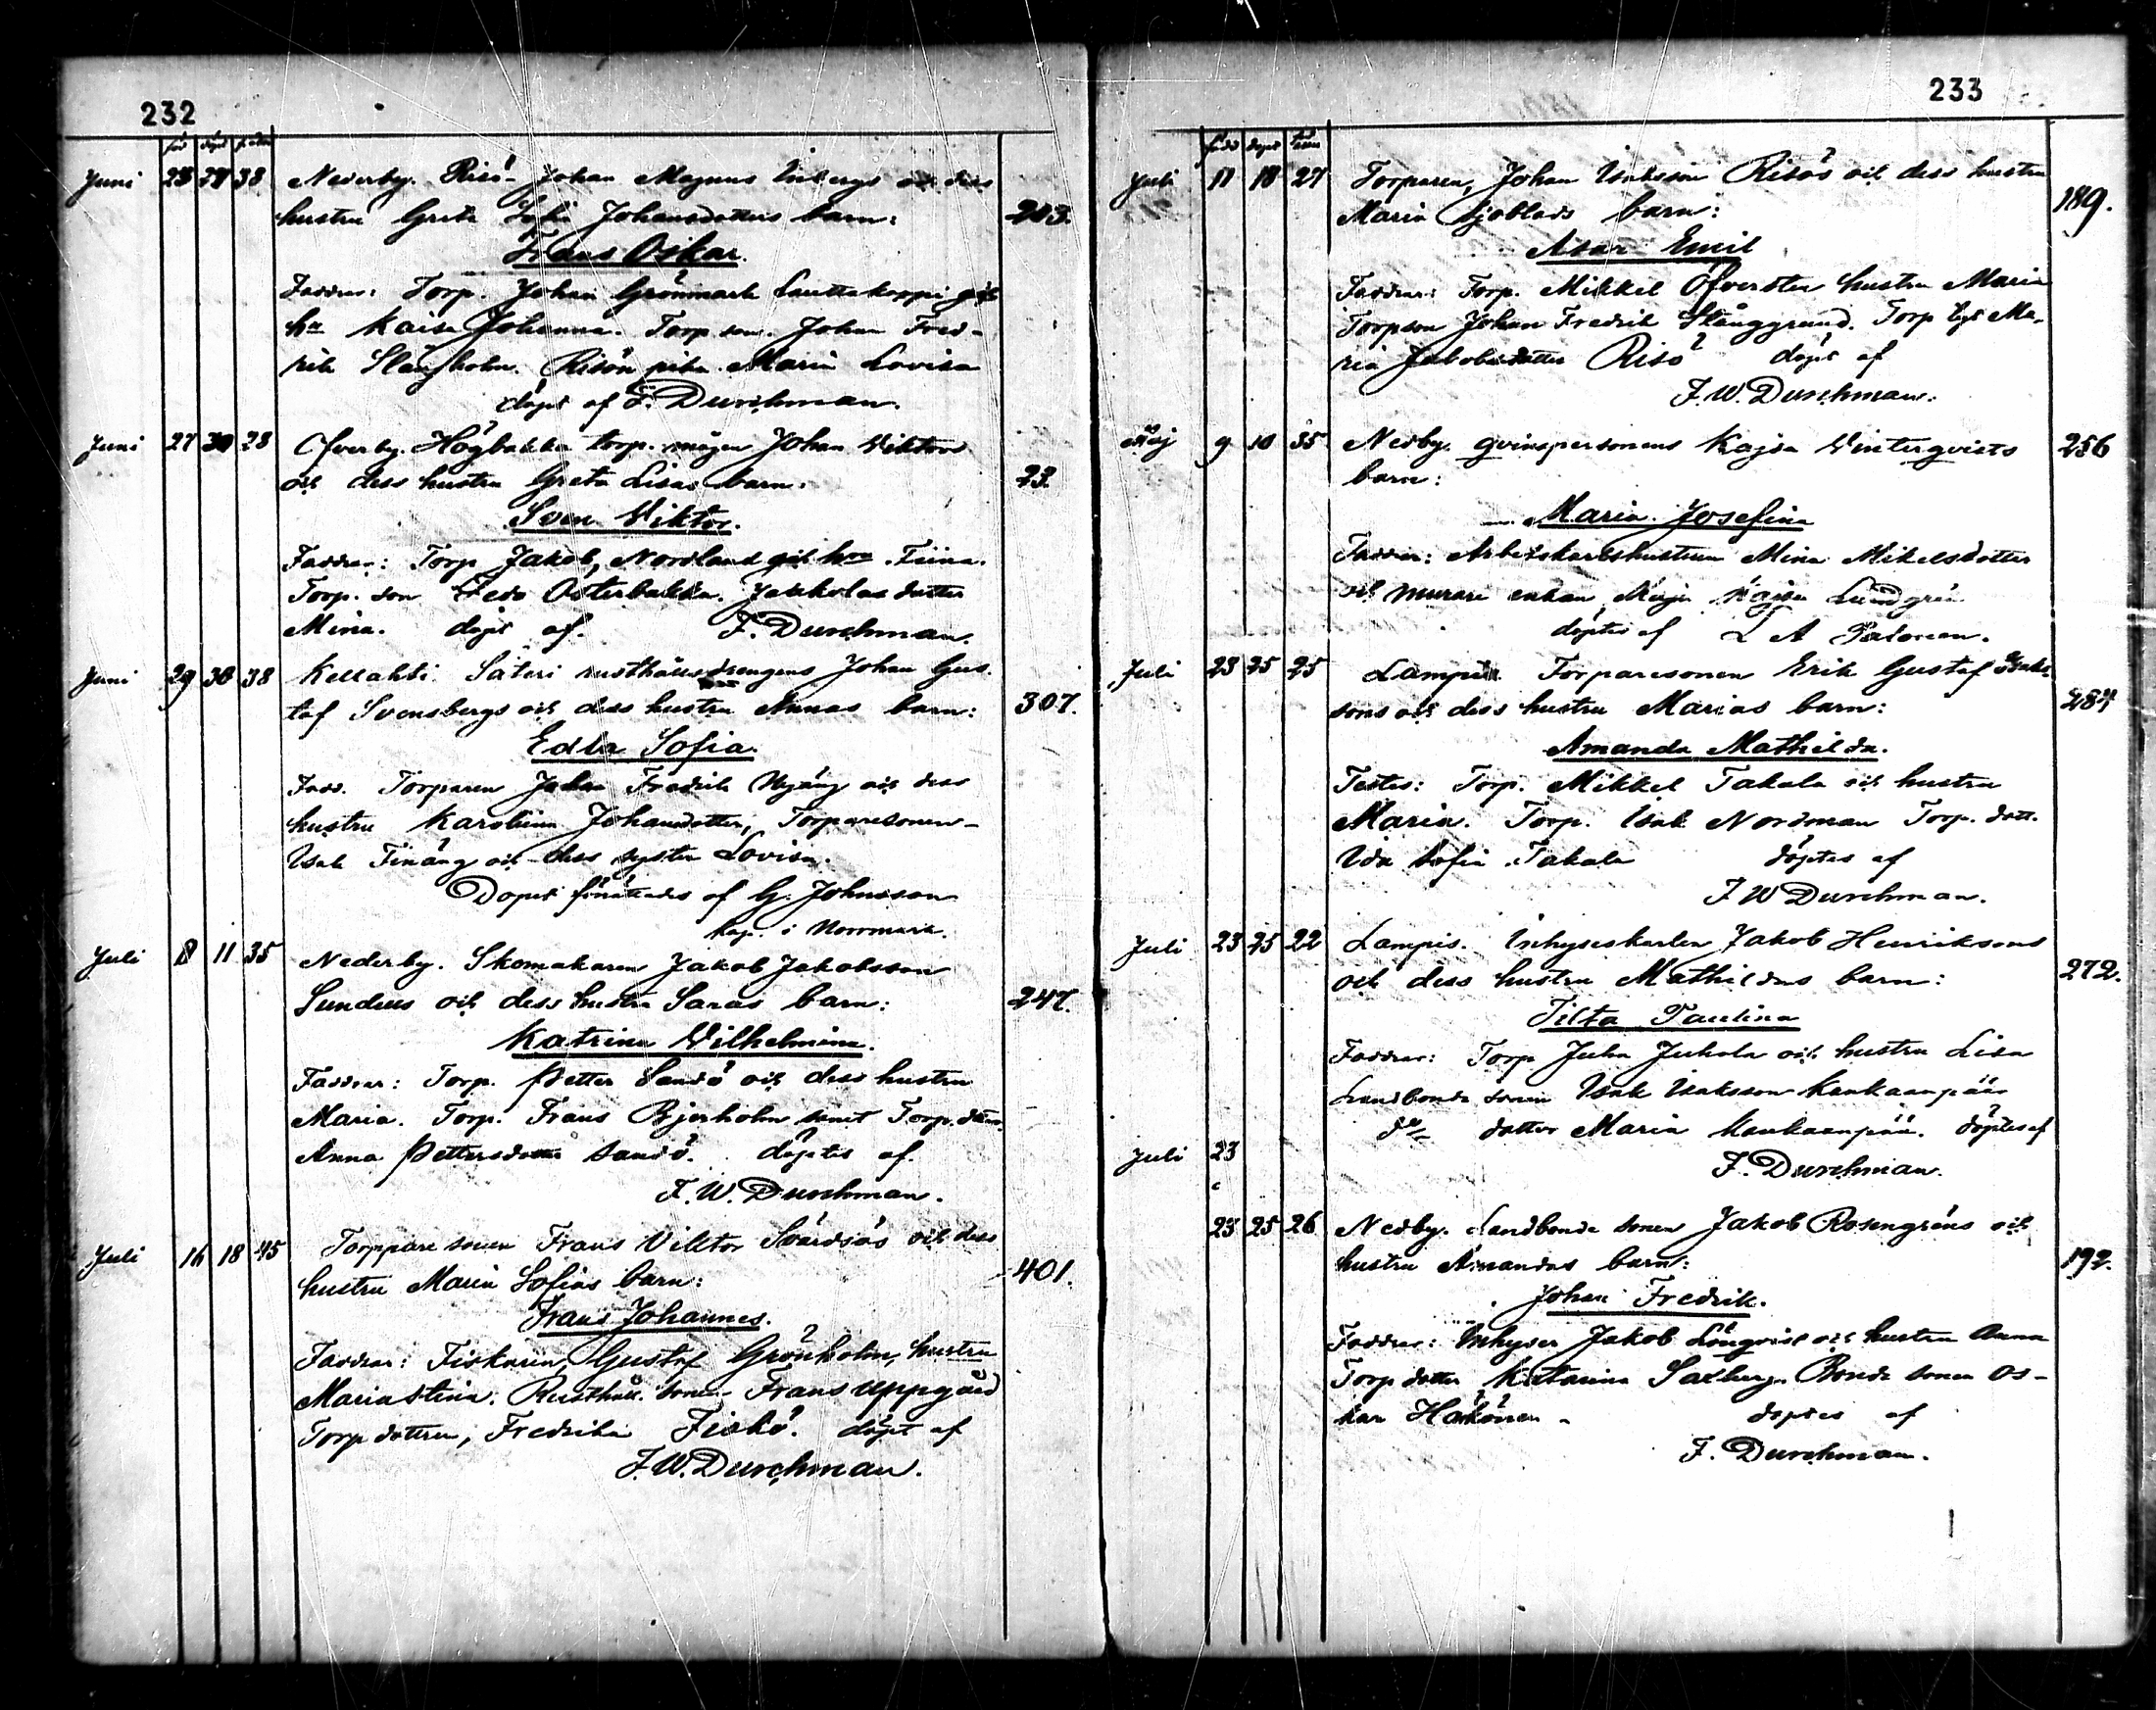 232
född döpt
Juni 23 24 38 Nederby. Risö Johan Magnus och dess
hustru Greta Sofia Johansdotters barn: 203.
Frans Oskar.
Faddrar: Torp. Johan Grönmark och
hu Kaisa Johanna. Torp. son. Johan Fred-
rik Slångholm. Risön piha Maria Lovisa
döpt af F. Durchman.
Juni 27 30 28 Öfverby. Högbakka torp. mågen Johan Viktor
och dess hustru Greta Lisas barn. 23.
Sven Viktor.
Faddrar: Torp Jakob Nordlund och hru Tiina.
Torp. son Österbakka. Jaakolas dotter
Mina. döpt af. F. Durchman.
Juni 29 30 38 Kellahti. Säteri rusthålls drengens Johan Gus-
taf Svensbergs och dess hustru Annas barn: 307.
Edla Sofia.
Fadd. Torparen Johan Fredrik Nyäng och dess
hustru Karolina Johansdotter, Torparesonen
Isak Finäng och dess syster Lovisa.
Dopet förrättades af G. Johnsson
kap. i Norrmark.
Juli 8 11 35 Nederby. Skomakaren Jakob Jakobsson
Sundeus och dess hustru Saras barn: 247.
Katrina Vilhelmina.
Faddrar: Torp. Petter Sandö och dess hustru
Maria. Torp. Frans Bjerholm samt Torp. dottr.
Anna Pettersdotter Sandö. döptes af.
F. W. Durchman.
Juli 16 18 45 Torppare sonen Frans Viktor Svärdsös och dess
hustru Maria Sofias barn: 401.
Frans Johannes.
Faddrar: Fiskaren, Gustaf Grönholm, hustru
Maria Stina. Rusthåll. sonen Frans Uppgård
Torp dottren, Fredrika Fiskö. döpt af
F. W. Durchman.
233
född döpt
Juli 17 18 27 Torparen, Johan Isaksson Risös och dess hustru
Maria Sjöblads barn: 189.
Emil
Faddrar: Torp. Mikkel Öfversten hustru Maria
Torpson Johan Fredrik Stånggrund. Torp Ma-
ria Jakobsdotter Risö döpt af
F. W. Durchman.
Maj 9 10 35 Nedby. qvinspersonens Kajsa Vinterqvists 256
barn:
Maria Josefina
Faddrar: Arbetskarlshustrun Mina Mikelsdotter
och murare enkan Maja Kajsa Lundgrén
döptes af L A Palorean.
Juli 23 25 25 Lampis. Torparesonen Erik Gustaf Isaks-
sons och dess hustru Marias barn: 284
Amanda Mathilda.
Testes: Torp. Mikkel Takala och hustru
Maria. Torp. Isak Nordman Torp. dott.
Ida Sofia Takala döptes af
F W Durchman.
Juli 23 25 22 Lampis. Inhyseskarlen Jakob Henriksons
och dess hustru Mathildas barn: 272.
Tilta Paulina
Faddrar: Torp Juha Juhola och hustru Lisa
Landbonde sonen Isak Isaksson Kankaanpää
do dotter Maria Kankaanpää. döptes af
Juli 23
F. Durchman.
23 25 26 Nedby. Landbonde sonen Jakob Rosengréns och
hustru Amandas barn: 192.
Johan Fredrik.
Faddrar: Inhyser Jakob Lönqvist och hustru Anna
Torp dotter Katarina Saxberg. Bonde sonen Os-
kar Hakönen döptes af
F. Durchman.